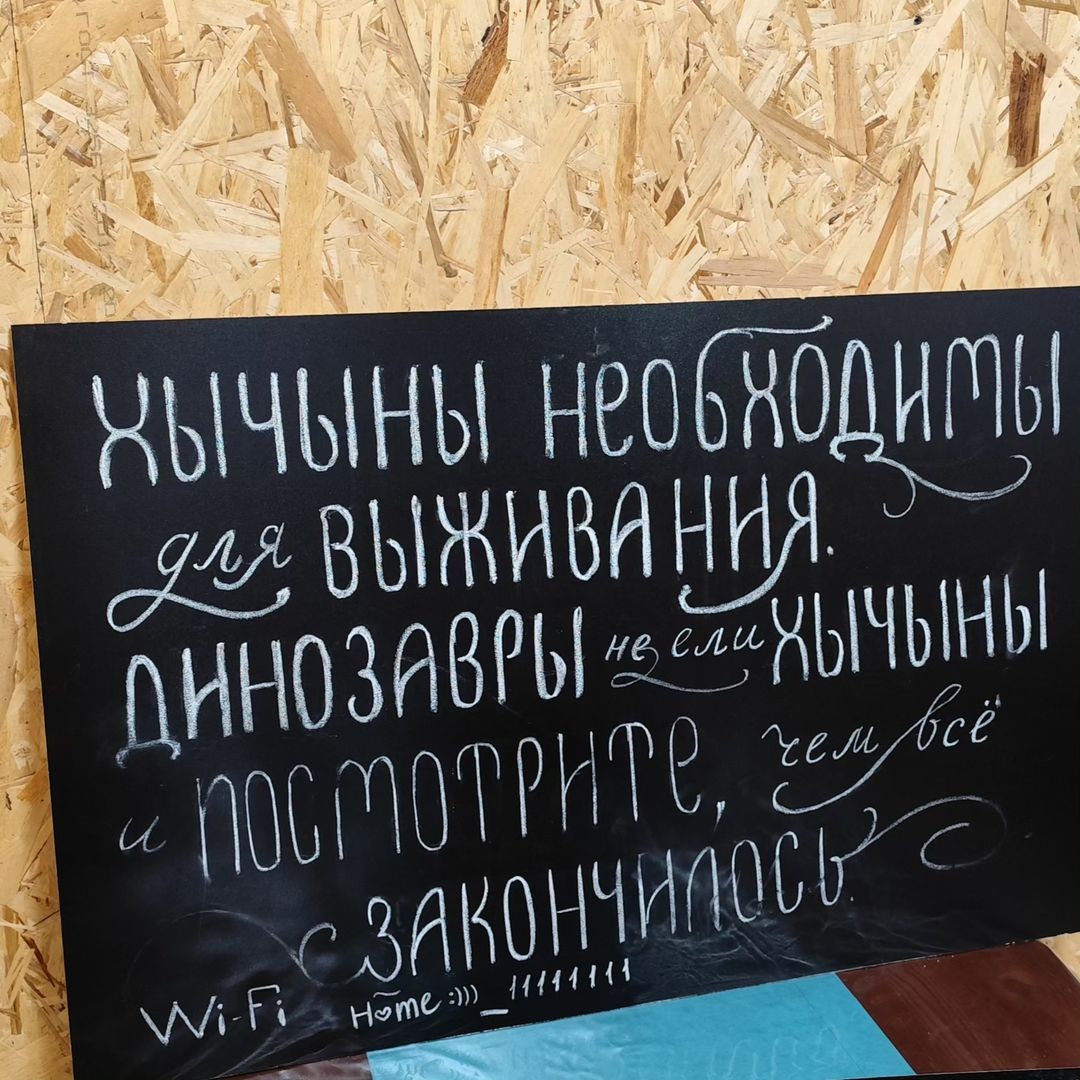 ХЫЧЫНЫ НЕОБХОДИМЫ
для ВЫЖИВАНИЯ.
ДИНОЗАВРЫ не ели ХЫЧЫНЫ
и ПОСМОТРИТЕ, чем всё
ЗАКОНЧИЛОСЬ.
Wi-Fi Home :))) _ 111111111